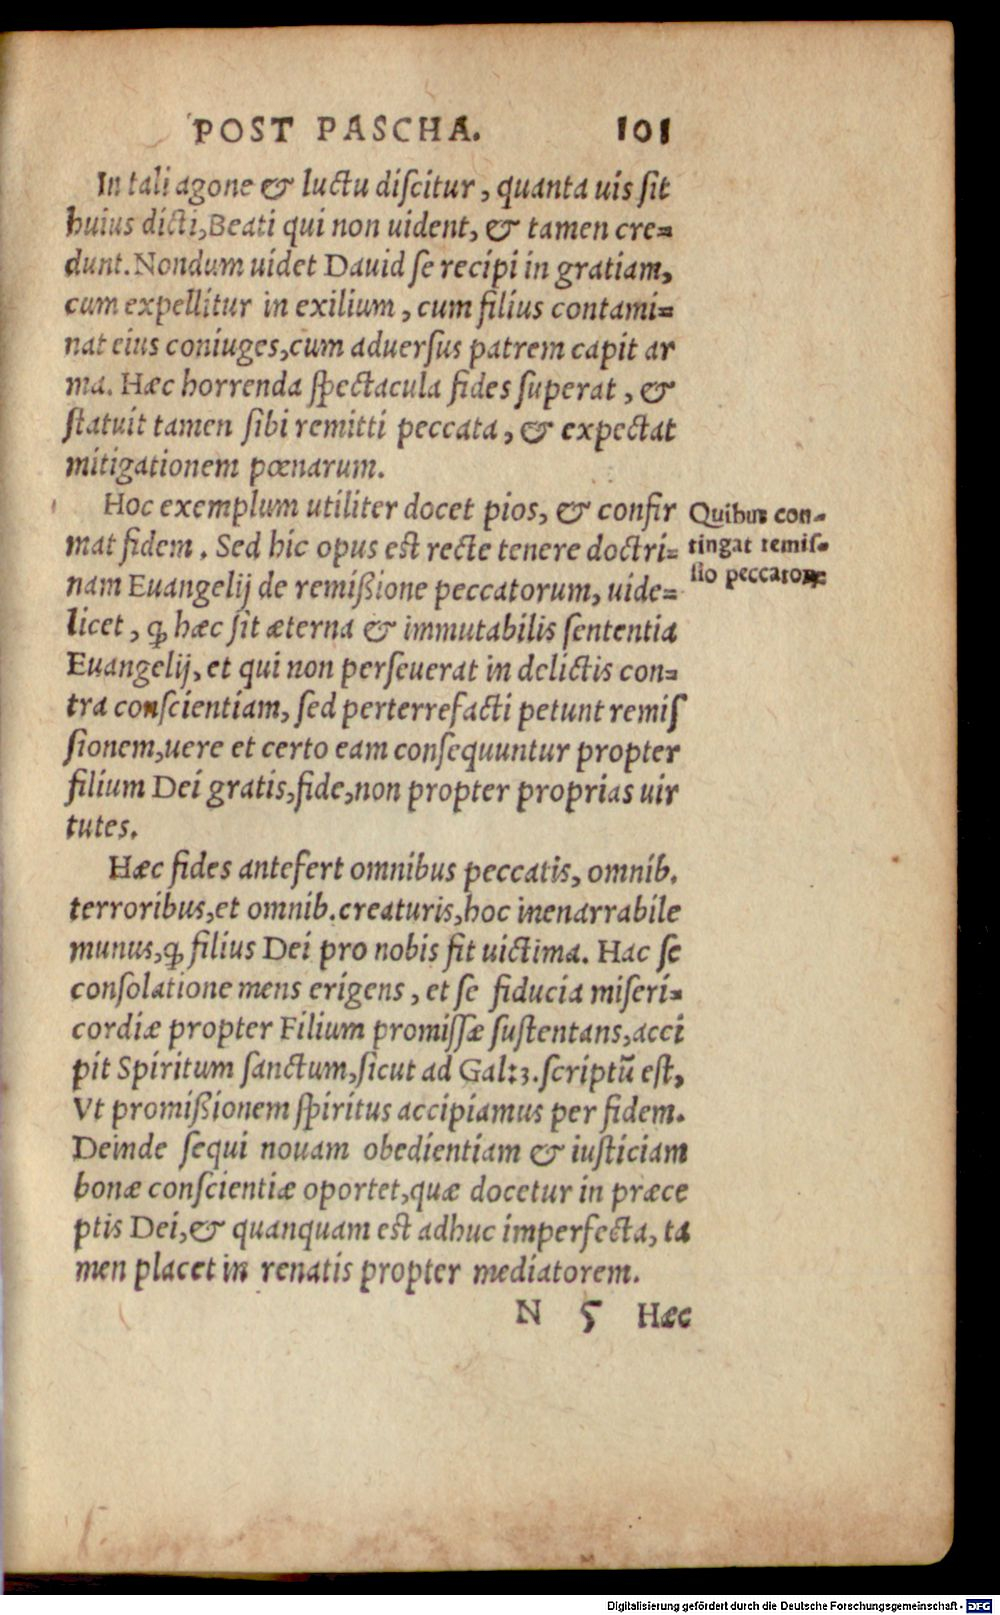 POST PASCHA. 101
In tali agone & luctu diſcitur, quanta uis ſit
huius dicti, Beati qui non uident, & tamen cre=
dunt. Nondum uidet Dauid ſe recipi in gratiam,
cum expellitur in exilium, cum filius contami=
nat eius coniuges, cum aduerſus patrem capit ar
ma. Hæc horrenda ſpectacula fides ſuperat, &
ſtatuit tamen ſibi remitti peccata, & expectat
mitigationem pœnarum.
Hoc exemplum utiliter docet pios, & confir
mat fidem. Sed hic opus eſt recte tenere doctri=
nam Euangelij de remißione peccatorum, uide=
licet, ꝙ hæc ſit æterna & immutabilis ſententia
Euangelij, et qui non perſeuerat in delictis con=
tra conſcientiam, ſed perterrefacti petunt remiſ
ſionem, uere et certo eam conſequuntur propter
filium Dei gratis, fide, non propter proprias uir
tutes.
Quibus con-
tingat remiſ-
ſio peccatorꝝ
Hæc fides antefert omnibus peccatis, omnib.
terroribus, et omnib. creaturis, hoc inenarrabile
munus, ꝙ filius Dei pro nobis fit uictima. Hac ſe
conſolatione mens erigens, et ſe fiducia miſeri=
cordiæ propter Filium promiſſæ ſuſtentans, acci
pit Spiritum ſanctum, ſicut ad Gal: 3. ſcriptũ eſt,
Vt promißionem ſpiritus accipiamus per fidem.
Deinde ſequi nouam obedientiam & iuſticiam
bonæ conſcientiæ oportet, quæ docetur in præce
ptis Dei, & quanquam eſt adhuc imperfecta, ta
men placet in renatis propter mediatorem.
N 5 Hæc
Digitalisierung gefördert durch die Deutsche Forschungsgemeinschaft - DFG